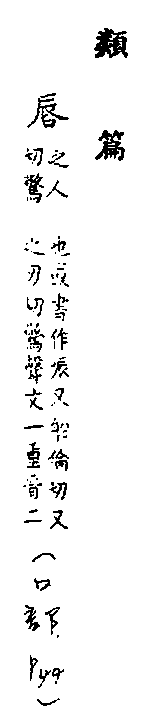 類篇
脣 之人切驚
也或書作振又船倫切又
之刃切驚聲文一重音二
(口部 P49)